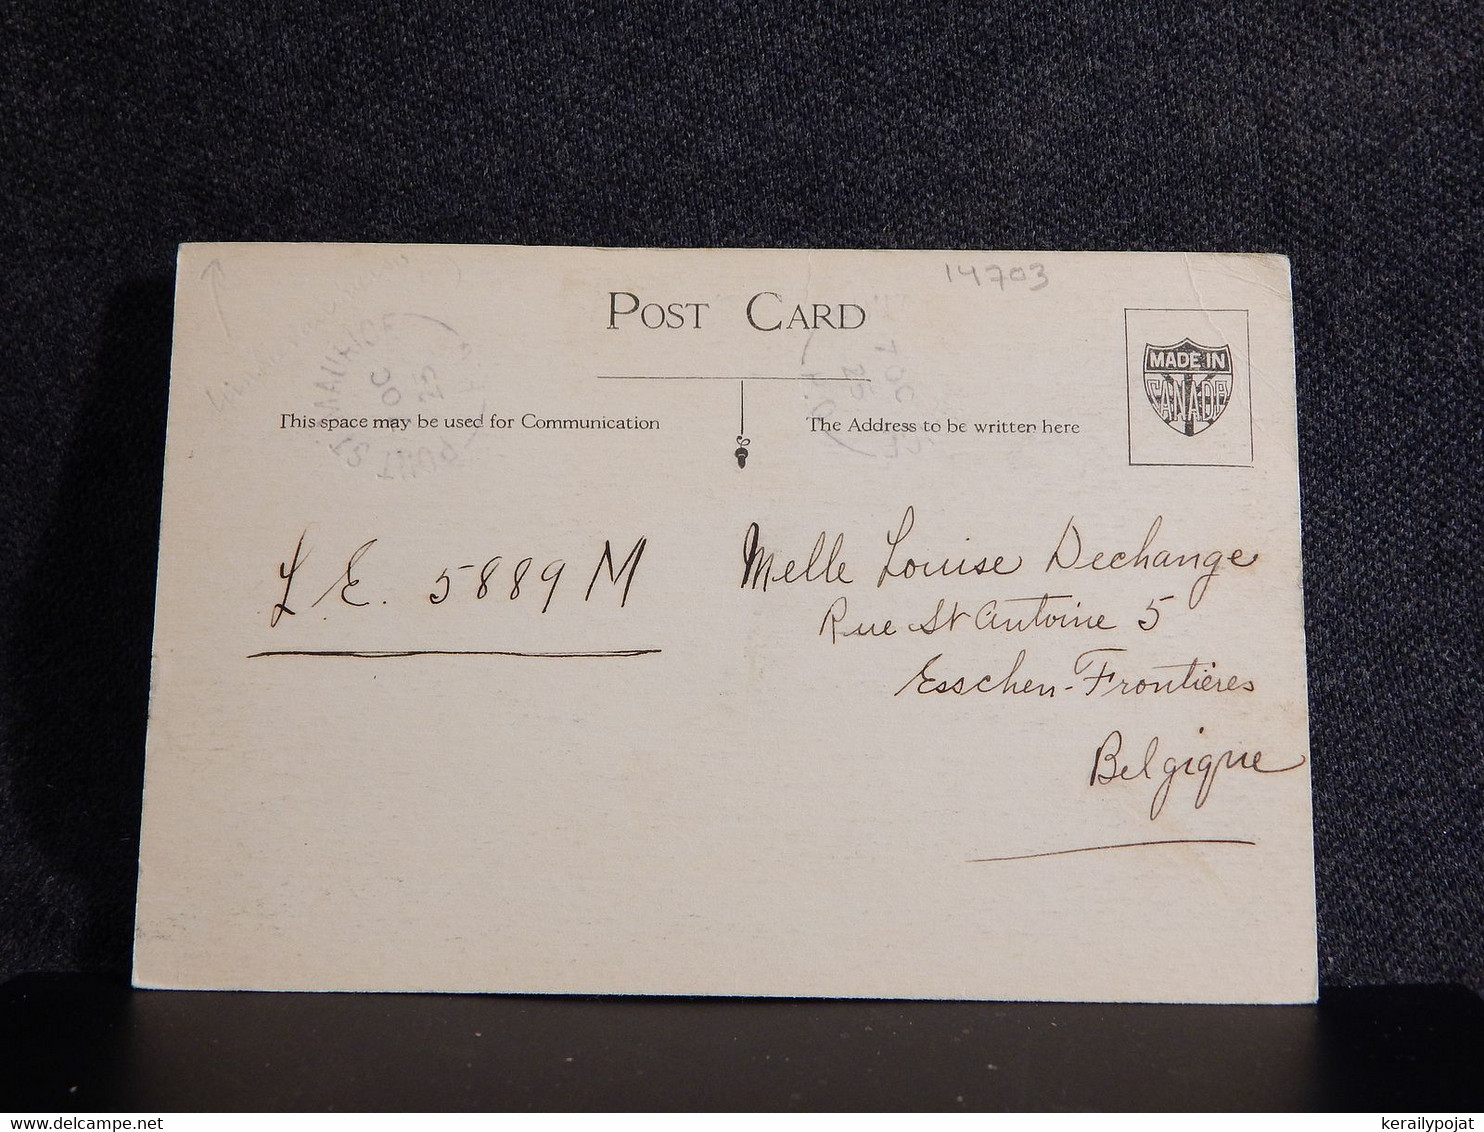 14703
POST CARD
MADE IN
CANADA
This space may be used for Communication
The Address to be written here
ST. MAURICE
OC
25
PONT
7 OC
25
P.Q.
L. E. 5889 M
Melle Louise Dechange
Rue St Antoine 5
Esschen-Frontières
Belgique
kerailypojat